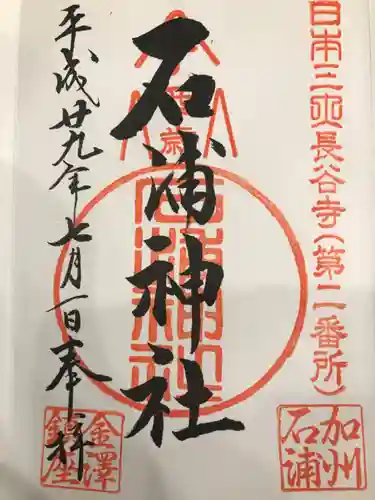 日本三大長谷寺(第二番所)
石浦神社
平成廿九年七月一日奉拝
加州
石浦
金澤
鎮座